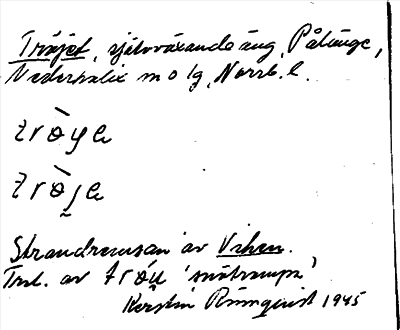 Tröjet, självväxande äng, Pålänge,
Nederkalix m o lg, Norrb. l.
trö̀ye
trö̀je
Strandremsan av Viken.
Trol. av
Kerstin Rönnqvist 1945